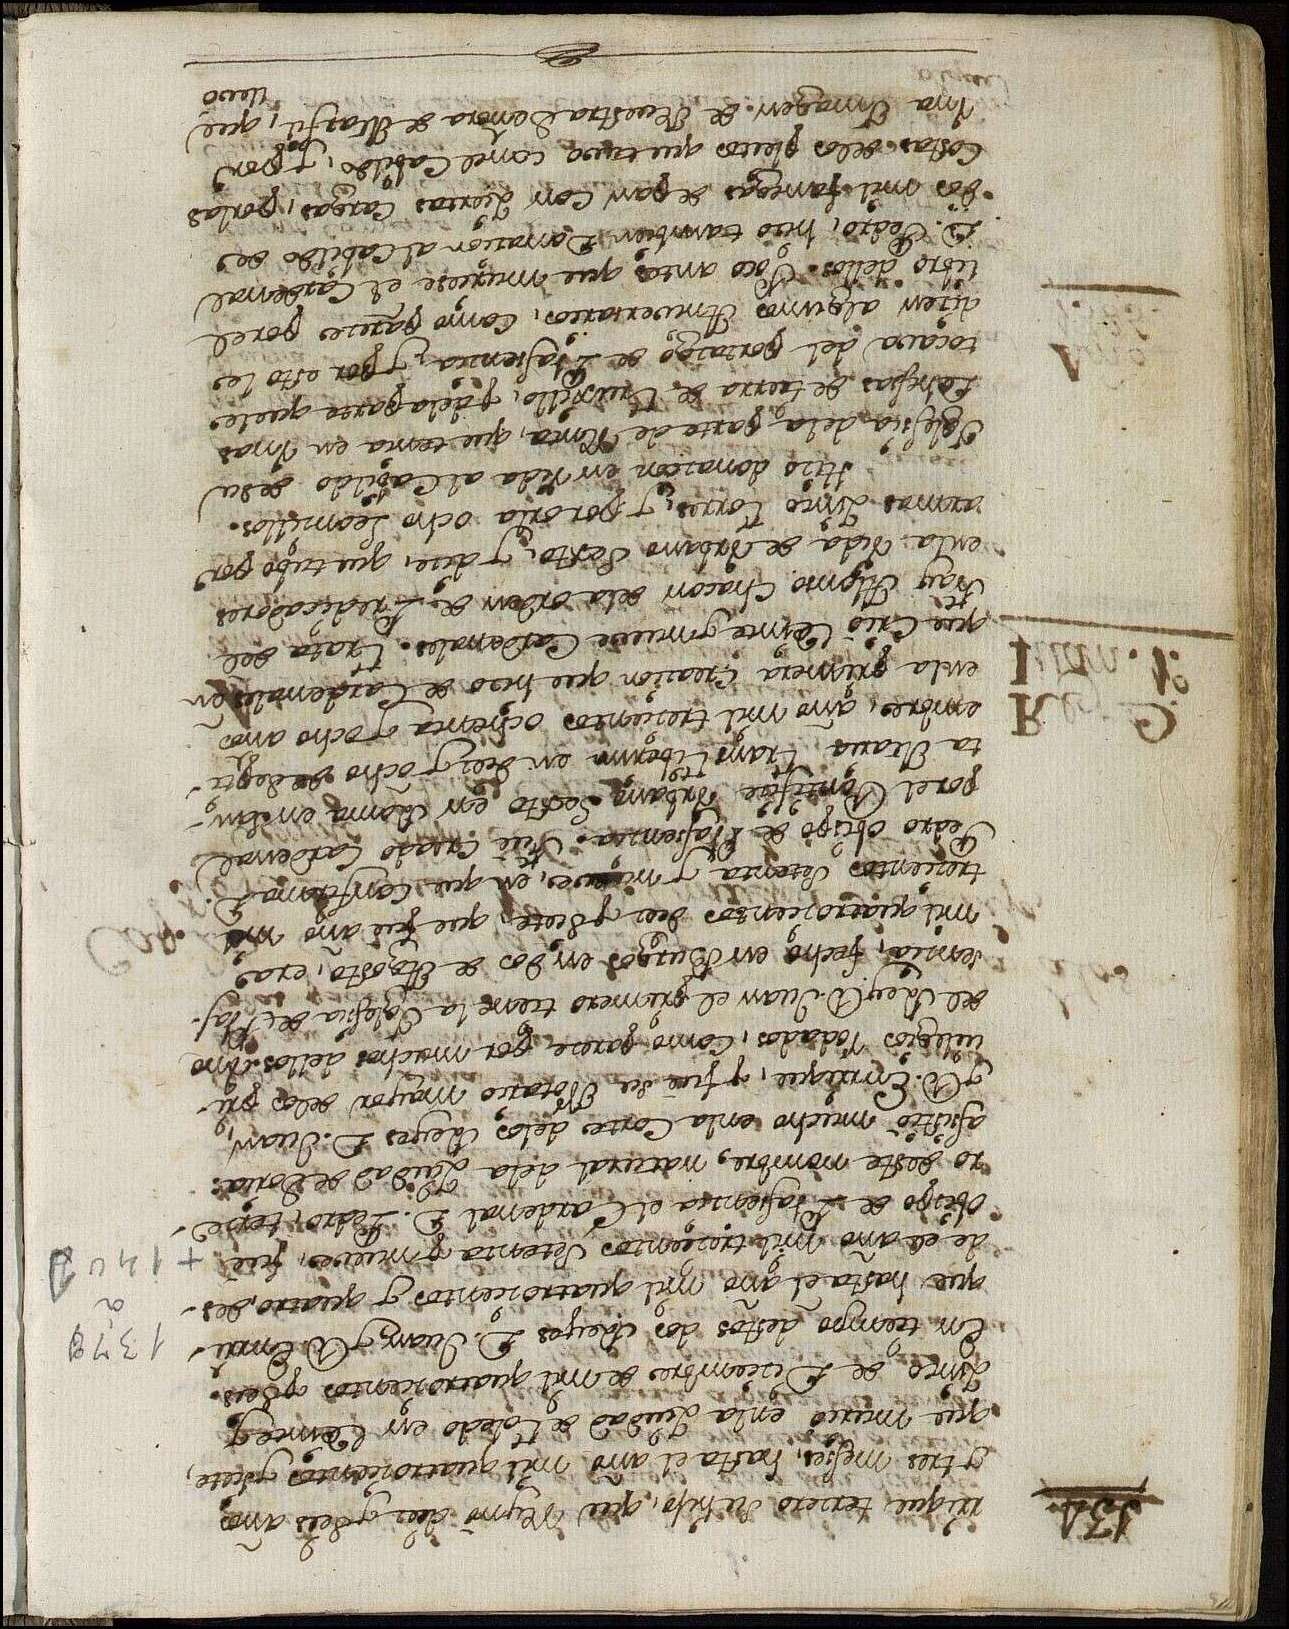 134
rrique tercero su hijo, que Reynò diez, y seis años
y tres meses, hasta el año mil quatrocientos, y siete,
que murio en la Ciudad de Toledo en veinte y
cinco de Diciembre de mil quatrocientos y seis.
En tiempo destos dos Reyes D. Juan, y D. Enrri-
que, hasta el año mil quatrocientos y quatro, des-
de el año mil trecientos setenta y nueve, fue
Obispo de Plasencia el Cardenal D. Pedro, terce-
ro deste nombre, natural de la Ciudad de Soria:
asistiò mucho en la Corte de los Reyes D. Juan,
y D. Enrrique, y fue su Notario mayor de los pri-
uilegios Rodados, como parece por muchos dellos. Uno
del Rey D. Juan el primero tiene la Yglesia de Pla-
sencia, fecho en Burgos en dos de Agosto, era
mil quatrocientos diez y siete, que fuè año mil
trecientos setenta y nueve, en que confirma D.
Pedro Obispo de Plasencia. Fuè creado Cardenal
por el Pontifice Urbano Sexto en Roma en San-
ta Maria Trans Tiberim en diez y ocho de Septi-
embre, año mil trecientos ochenta y ocho años
en la primera creacion que hizo de Cardenales en
que criò veinte y nueve Cardenales. Trata del
Fray Alonso Chacon de la orden de Predicadores
en la vida de Urbano Sexto, y dice, que tubo por
armas cinco Torres, y por orla ocho Leoncillos.
Hizo donacion en vida al Cabildo de su
Yglesia de la parte de Renta, que tenia en unas
dehesas de tierra de Truxillo, y de la parte que le
tocava del portazgo de Plasencia, y por esto le
dicen algunos Aniversarios, como parece por el
libro dellos. Poco antes que muriese el Cardenal
D. Pedro, hizo tambien Donacion al Cabildo de
dos mil fanegas de pan con ciertas cargas, por las
costas de los pleitos que tuvo con el Cabildo, y por
una Imagen de Nuestra Señora de Marfil, que
llevò
1379
a
+ 140